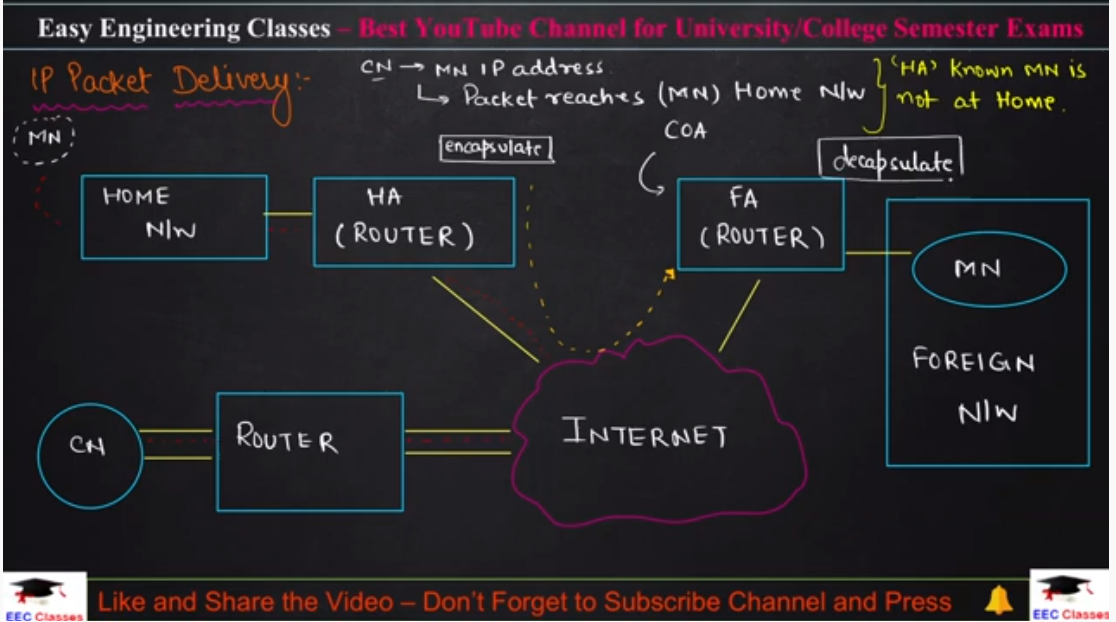 Easy Engineering Classes – Best YouTube Channel for University/College Semester Exams
IP Packet Delivery:-
CN → MN IP address.
↳ Packet reaches (MN) Home N/w
'HA' Known MN is
not at Home.
MN
encapsulate
COA
decapsulate
HOME
N/W
HA
(ROUTER)
FA
(ROUTER)
MN
FOREIGN
N/W
CN
ROUTER
INTERNET
EEC Classes
Like and Share the Video – Don't Forget to Subscribe Channel and Press
EEC Classes